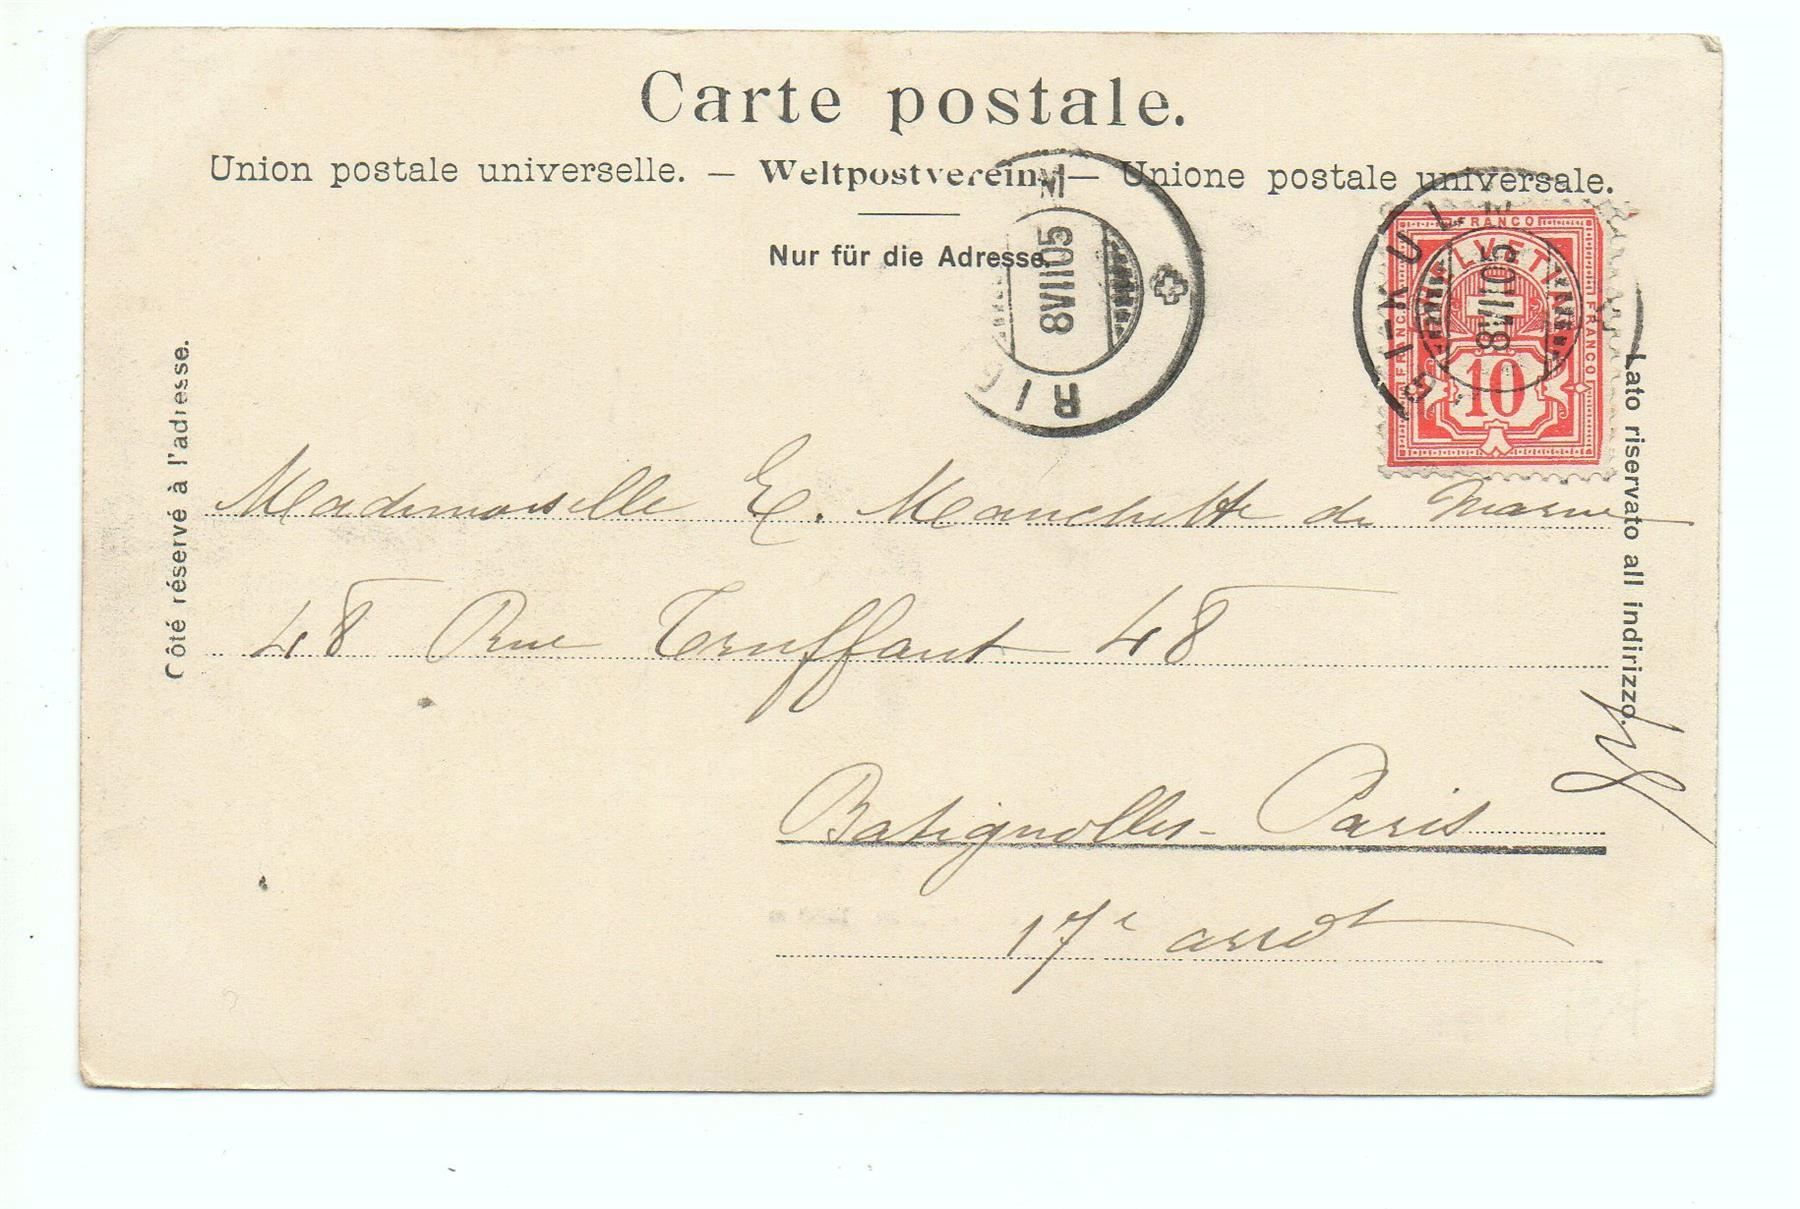 Carte postale.
Union postale universelle. — Weltpostverein. — Unione postale universale.
Nur für die Adresse.
Côté réservé à l'adresse.
Lato riservato all indirizzo.
8 VII 05
RIGI
RIGI-KUL
8 VII 05
FRANCO
HELVETIA
FRANCO
FRANCO
10
Mademoiselle E. Manchette de Marne
48 Rue Truffaut 48
Batignolles - Paris
17e arrdt